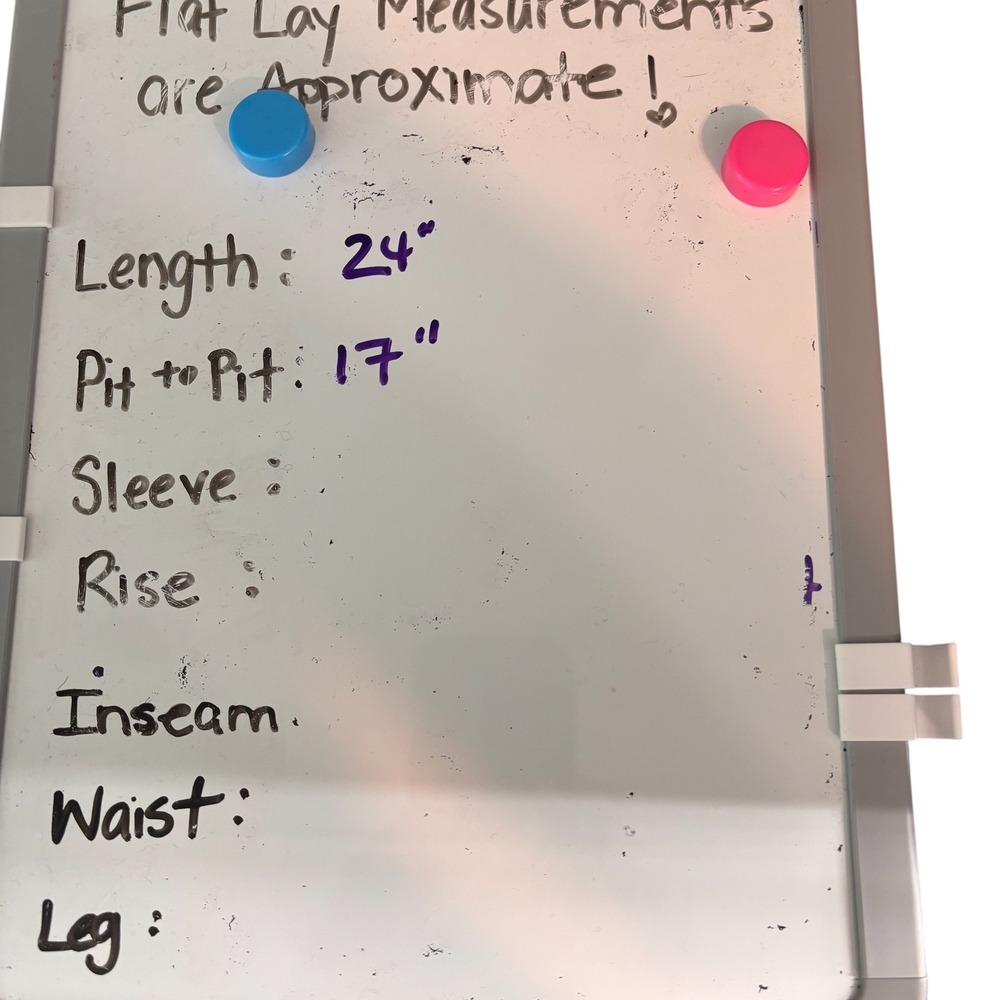 Flat Lay Measurements
are Approximate!
Length: 24"
Pit to Pit: 17"
Sleeve:
Rise:
Inseam.
Waist:
Leg: